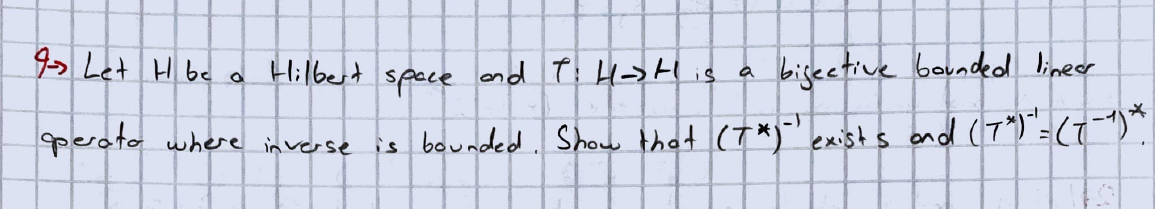 9→ Let H be a Hilbert space and T: H→H is a bijective bounded linear
operator where inverse is bounded. Show that (T*)⁻¹ exists and (T*)⁻¹=(T⁻¹)*.